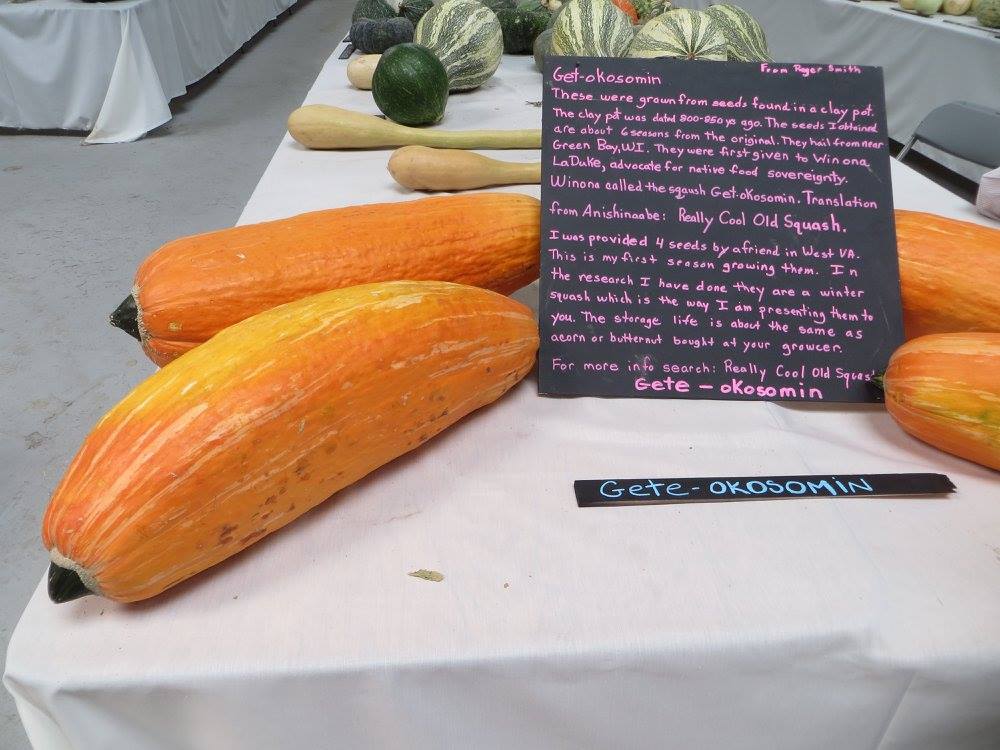 From Roger Smith
Get-okosomin
These were grown from seeds found in a clay pot.
The clay pot was dated 800-850 ys ago. The seeds I obtained
are about 6 seasons from the original. They hail from near
Green Bay, WI. They were first given to Winona
LaDuke, advocate for native food sovereignty.
Winona called the sqaush Get-okosomin. Translation
from Anishinaabe: Really Cool Old Squash.
I was provided 4 seeds by a friend in West VA.
This is my first season growing them. In
the research I have done they are a winter
squash which is the way I am presenting them to
you. The storage life is about the same as
acorn or butternut bought at your growcer.
For more info search: Really Cool Old Squash
Gete - okosomin
Gete - OKOSOMIN